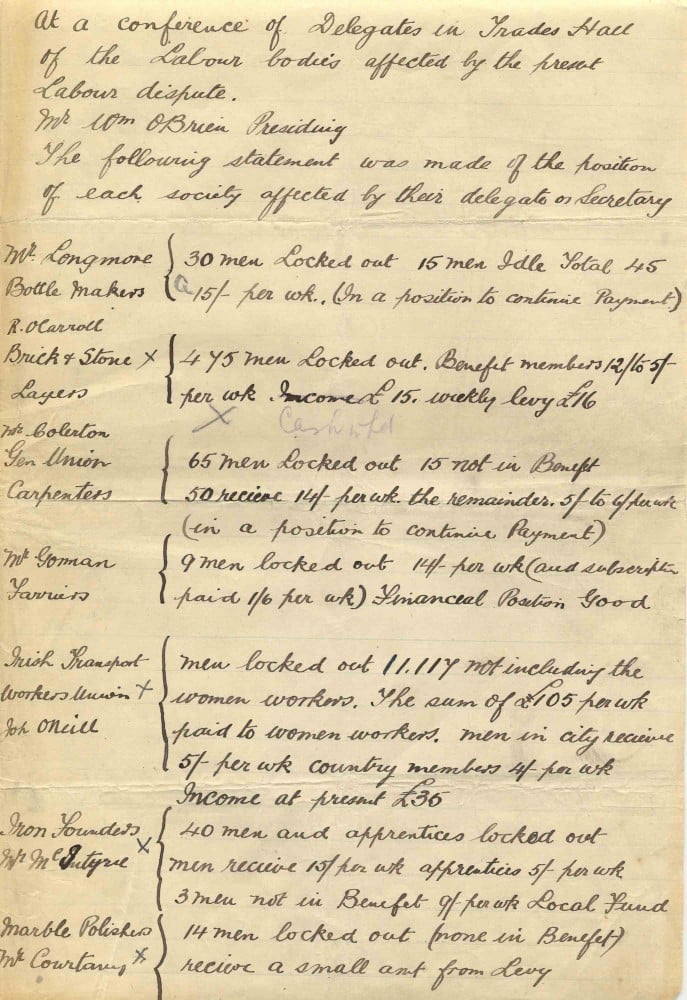 At a conference of Delegates in Trades Hall
of the Labour bodies affected by the present
Labour dispute.
Mr Wm OBrien Presiding
The following statement was made of the position
of each society affected by their delegate or Secretary
Mr. Longmore
30 men Locked out 15 men Idle Total 45
Bottle Makers
15/- per wk.. (In a position to continue Payment)
R. OCarroll
Brick & Stone x
475 men Locked out. Benefit members 12/ to 5/-
Layers
per wk Income £15. weekly levy £16
x
Mr Colerton
Gen Union
65 men Locked out 15 not in Benefit
Carpenters
50 recieve 14/- per wk. the remainder. 5/- to 6/ per wk
(in a position to continue Payment)
Mr Gorman
9 men locked out 14/- per wk (and subscription
Farriers
paid 1/6 per wk) Financeal Position Good
Irish Transport
men locked out 11.117 not including the
Workers Union x
women workers. The sum of £105 per wk
Joh ONeill
paid to women workers. men in city recieve
5/- per wk country members 4/- per wk
Income at present £35
Iron Founders
40 men and apprentices locked out
Mr McIntyre x
men recieve 15/ per wk apprentices 5/- per wk
3 men not in Benefit 9/- per wk Local Fund
Marble Polishers
14 men locked out (none in Benefit)
Mr Courtaney x
recieve a small amt from Levy